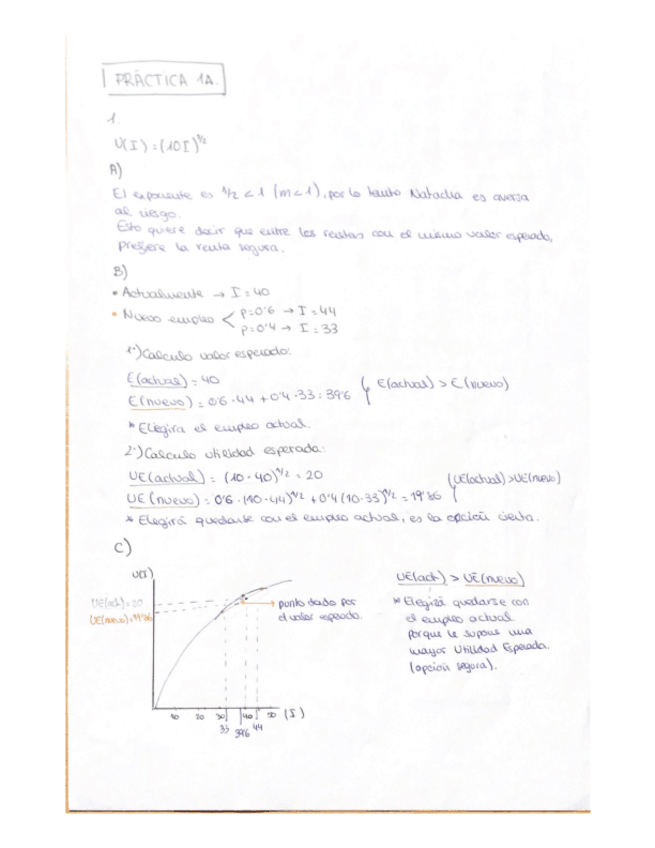 PRÁCTICA 1A.
1.
U(I) = (10I)^1/2
A)
El exponente es 1/2 < 1 (m<1), por lo tanto Natacha es aversa
al riesgo.
Esto quiere decir que entre las rentas con el mismo valor esperado,
prefiere la renta segura.
B)
• Actualmente → I = 40
• Nuevo empleo < p=0'6 → I = 44
p=0'4 → I = 33
1º) Calculo valor esperado:
E(actual) = 40
E(nuevo) = 0'6 · 44 + 0'4 · 33 = 39'6
E(actual) > E(nuevo)
* Elegira el empleo actual.
2º) Calculo utilidad esperada:
UE(actual) = (10 · 40)^1/2 = 20
UE(nuevo) = 0'6 · (10 · 44)^1/2 + 0'4 (10 · 33)^1/2 = 19'86
UE(actual) > UE(nuevo)
* Elegirá quedarse con el empleo actual, es la opción cierta.
C)
U(I)
UE(act) = 20
UE(nuevo) = 19'86
punto dado por
el valor esperado.
10 20 30 40 50 (I)
33 39'6 44
UE(act) > UE(nuevo)
* Elegirá quedarse con
el empleo actual
porque le supone una
mayor Utilidad Esperada.
(opción segura).